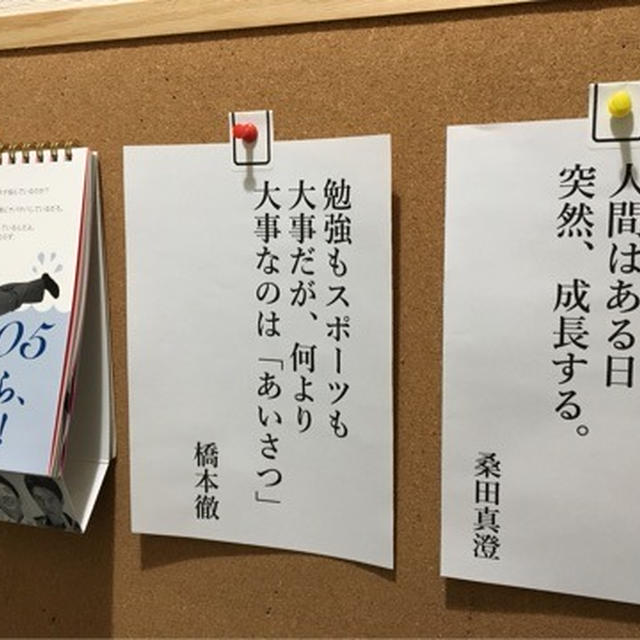 勉強もスポーツも
大事だが、何より
大事なのは「あいさつ」
橋本徹
人間はある日
突然、成長する。
桑田真澄
05
ら、
!